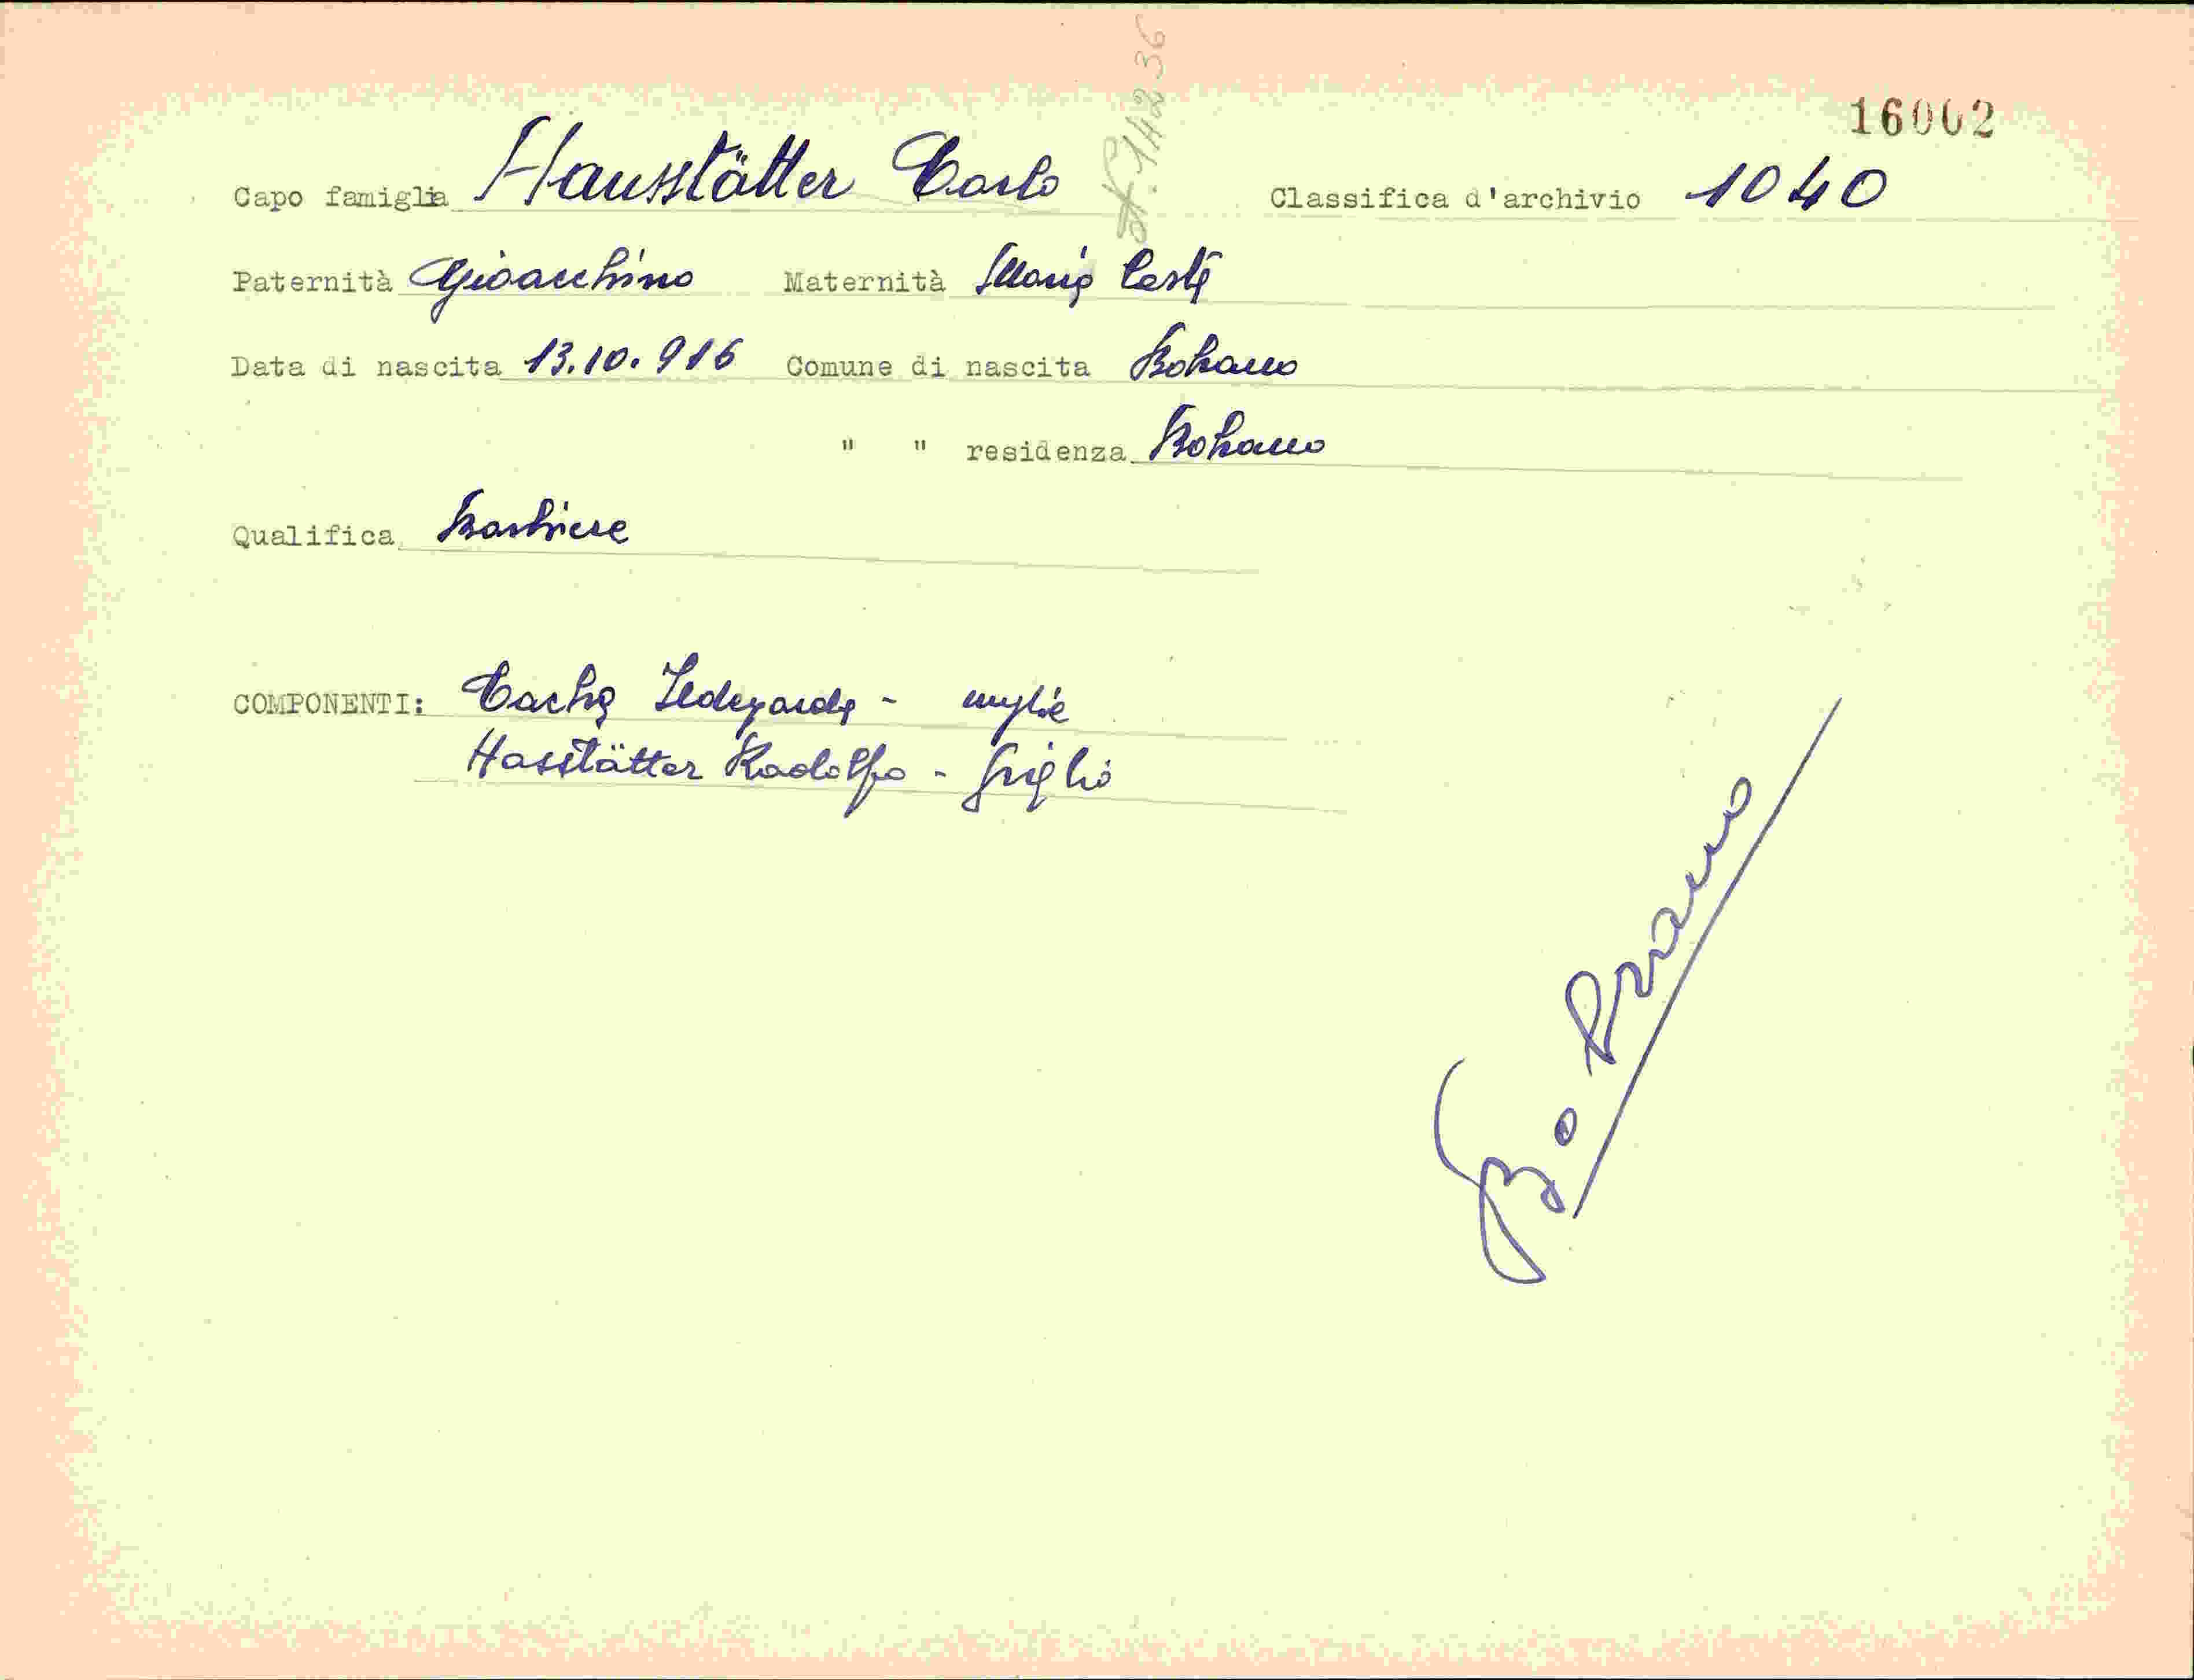 16002
Capo famiglia Hausstätter Carlo Classifica d'archivio 1040
Paternità Gioacchino Maternità Maria
Data di nascita 13.10.916 Comune di nascita Bolzano
" " residenza Bolzano
Qualifica Barbiere
COMPONENTI: Ildegarda - moglie
Hasstätter Rodolfo - figlio
Bolzano